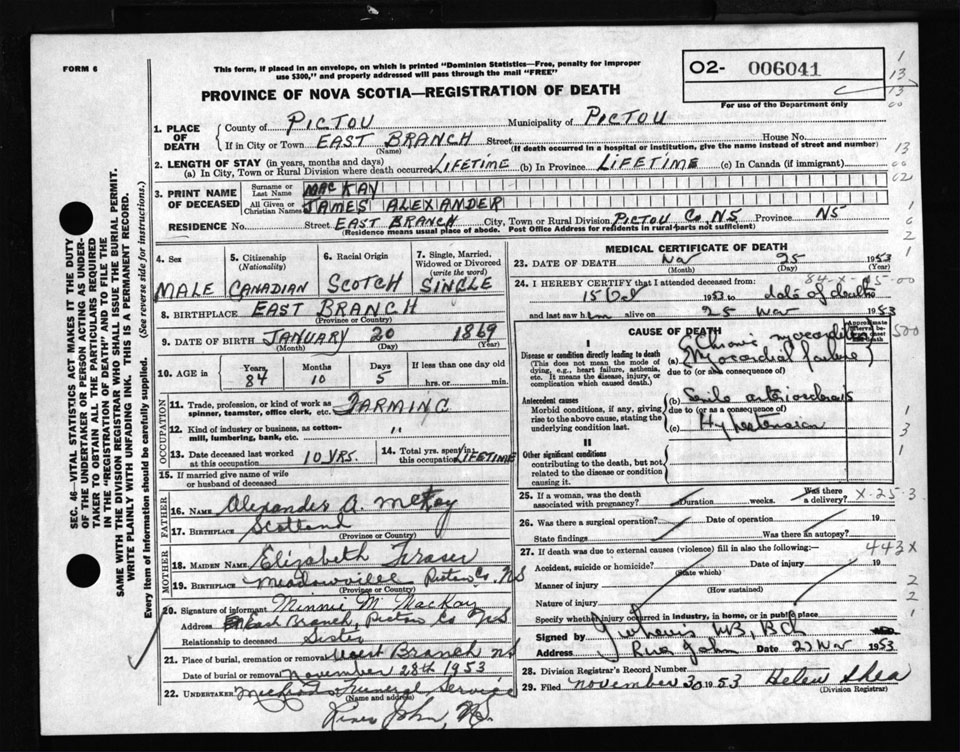 FORM 6
This form, if placed in an envelope, on which is printed "Dominion Statistics—Free, penalty for improper
use $300," and properly addressed will pass through the mail "FREE"
O2- 006041
PROVINCE OF NOVA SCOTIA—REGISTRATION OF DEATH
For use of the Department only
1. PLACE OF DEATH
County of PICTOU Municipality of PICTOU
If in City or Town EAST BRANCH Street House No.
(Name) (If death occurred in a hospital or institution, give the name instead of street and number)
2. LENGTH OF STAY (in years, months and days)
(a) In City, Town or Rural Division where death occurred LIFETIME (b) In Province LIFETIME (c) In Canada (if immigrant)
3. PRINT NAME OF DECEASED
Surname or Last Name MACKAY
All Given or Christian Names JAMES ALEXANDER
RESIDENCE No. Street EAST BRANCH City, Town or Rural Division PICTOU Co. NS Province NS
(Residence means usual place of abode. Post Office Address for residents in rural parts not sufficient)
4. Sex MALE
5. Citizenship (Nationality) CANADIAN
6. Racial Origin SCOTCH
7. Single, Married, Widowed or Divorced (write the word) SINGLE
8. BIRTHPLACE EAST BRANCH
(Province or Country)
9. DATE OF BIRTH JANUARY 20 1869
(Month) (Day) (Year)
10. AGE in Years 84 Months 10 Days 5 If less than one day old hrs. or min.
OCCUPATION
11. Trade, profession, or kind of work as spinner, teamster, office clerk, etc. FARMING
12. Kind of industry or business, as cotton-mill, lumbering, bank, etc. "
13. Date deceased last worked at this occupation 10 YRS.
14. Total yrs. spent in this occupation LIFETIME
15. If married give name of wife or husband of deceased
FATHER
16. NAME Alexander A. McKay
17. BIRTHPLACE Scotland
(Province or Country)
MOTHER
18. MAIDEN NAME Elizabeth Fraser
19. BIRTHPLACE Meadowville Pictou Co. NS
(Province or Country)
20. Signature of informant Minnie M MacKay
Address East Branch, Pictou Co NS
Relationship to deceased Sister
21. Place of burial, cremation or removal West Branch NS
Date of burial or removal November 28th 1953
22. UNDERTAKER Funeral Service
(Name and address)
River John, NS.
MEDICAL CERTIFICATE OF DEATH
23. DATE OF DEATH Nov 25 1953
(Month) (Day) (Year)
24. I HEREBY CERTIFY that I attended deceased from:
15 Oct 1953 to date of death
and last saw him alive on 25 Nov 1953
CAUSE OF DEATH
Approximate interval between onset and death
I
Disease or condition directly leading to death
(This does not mean the mode of dying, e.g., heart failure, asthenia, etc. It means the disease, injury, or complication which caused death.)
(a) Chronic myocarditis
Myocardial failure
due to (or as a consequence of)
Antecedent causes
Morbid conditions, if any, giving rise to the above cause, stating the underlying condition last.
(b) Senile arteriosclerosis
due to (or as a consequence of)
(c) Hypertension
II
Other significant conditions
contributing to the death, but not related to the disease or condition causing it.
25. If a woman, was the death associated with pregnancy? Duration weeks. Was there a delivery? X-25-3
26. Was there a surgical operation? Date of operation 19
State findings Was there an autopsy?
27. If death was due to external causes (violence) fill in also the following:— 443X
Accident, suicide or homicide? Date of injury 19
(State which)
Manner of injury
(How sustained)
Nature of injury
Specify whether injury occurred in industry, in home, or in public place
Signed by MB, BCh
Address River John Date 27 Nov 1953
28. Division Registrar's Record Number
29. Filed November 30 1953 Helen Shea
(Division Registrar)
SEC. 46—VITAL STATISTICS ACT MAKES IT THE DUTY
OF THE UNDERTAKER OR PERSON ACTING AS UNDER-
TAKER TO OBTAIN ALL THE PARTICULARS REQUIRED
IN THE "REGISTRATION OF DEATH" AND TO FILE THE
SAME WITH THE DIVISION REGISTRAR WHO SHALL ISSUE THE BURIAL PERMIT.
WRITE PLAINLY WITH UNFADING INK. THIS IS A PERMANENT RECORD.
Every item of information should be carefully supplied. (See reverse side for instructions.)